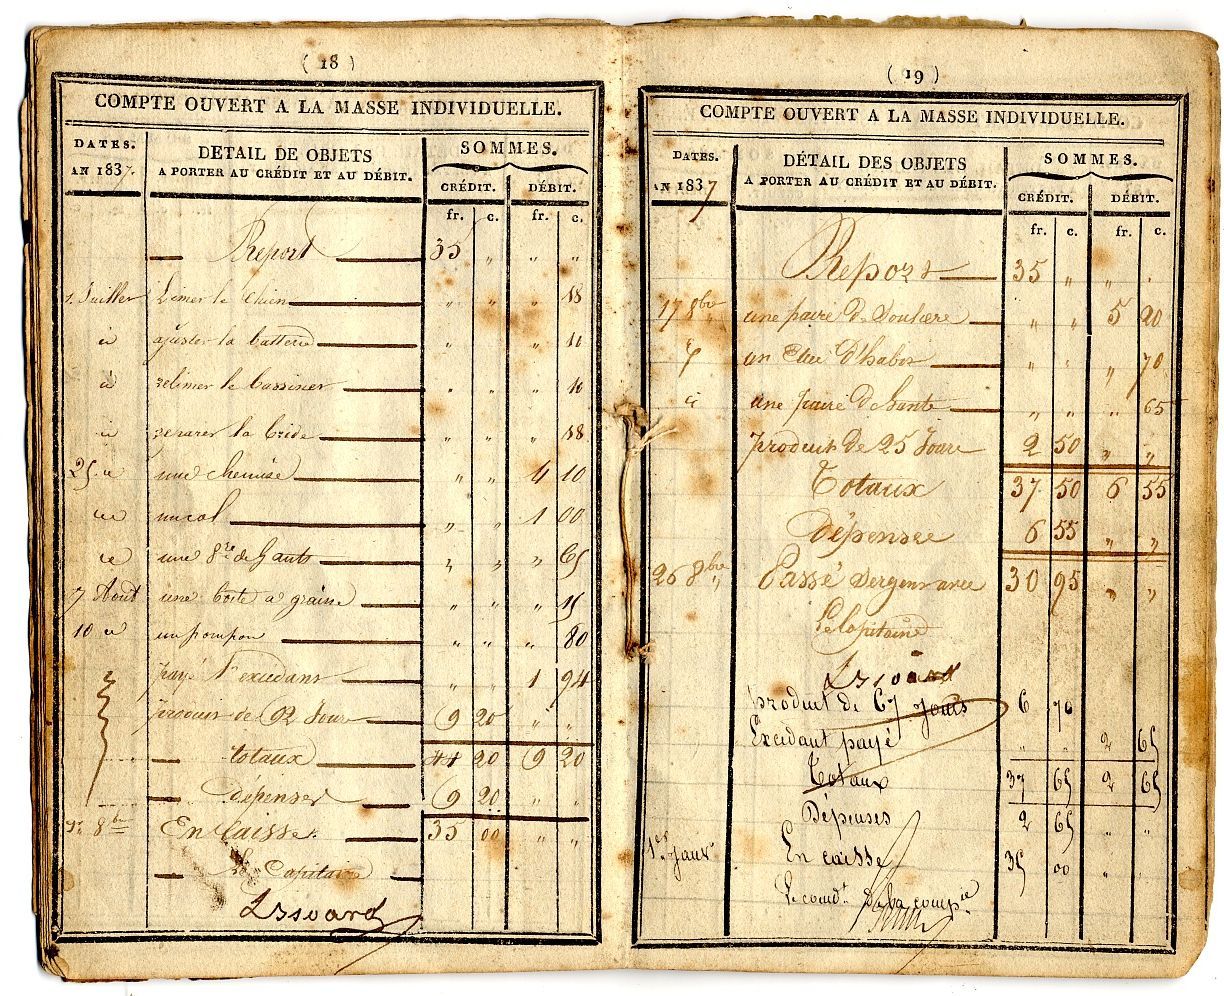 ( 18 )
COMPTE OUVERT A LA MASSE INDIVIDUELLE.
DATES. AN 1837. DETAIL DE OBJETS A PORTER AU CRÉDIT ET AU DÉBIT. SOMMES.
CRÉDIT. DÉBIT.
fr. c. fr. c.
Report 35 " " "
1. Juillet Limer le Chien " " " 18
" ajuster la batterie " " 10
" relimer le bassinet " " " 10
" reparer la bride " " " 18
25 " une chemise " " 4 10
un col " " 1 00
une pre de Gants " " " 65
7 Août une boite a graisse " " " 15
10 " un pompon " " " 80
payé l'excédant " " 1 94
produit de 92 Jours 9 20 " "
totaux 44 20 9 20
dépenses 9 20 " "
8bre En Caisse. 35 00 " "
Le Capitaine
Issoard
( 19 )
COMPTE OUVERT A LA MASSE INDIVIDUELLE.
DATES. AN 1837 DÉTAIL DES OBJETS A PORTER AU CRÉDIT ET AU DÉBIT. SOMMES.
CRÉDIT. DÉBIT.
fr. c. fr. c.
Report 35 " " "
17 8bre une paire de Souliere " " 5 20
un d'habit " " " 70
une paire de Gants " " " 65
produit de 25 Jours 2 50 " "
Totaux 37 50 6 55
Dépensee 6 55 " "
26 8bre Passé Sergent avec 30 95 " "
Le Capitaine
Issoard
Produit de 67 Jours 6 70
Excédant payé " " 2 65
Totaux 37 65 2 65
Dépenses 2 65 " "
1er Janvr En caisse 35 00 " "
Le comdt de la compie